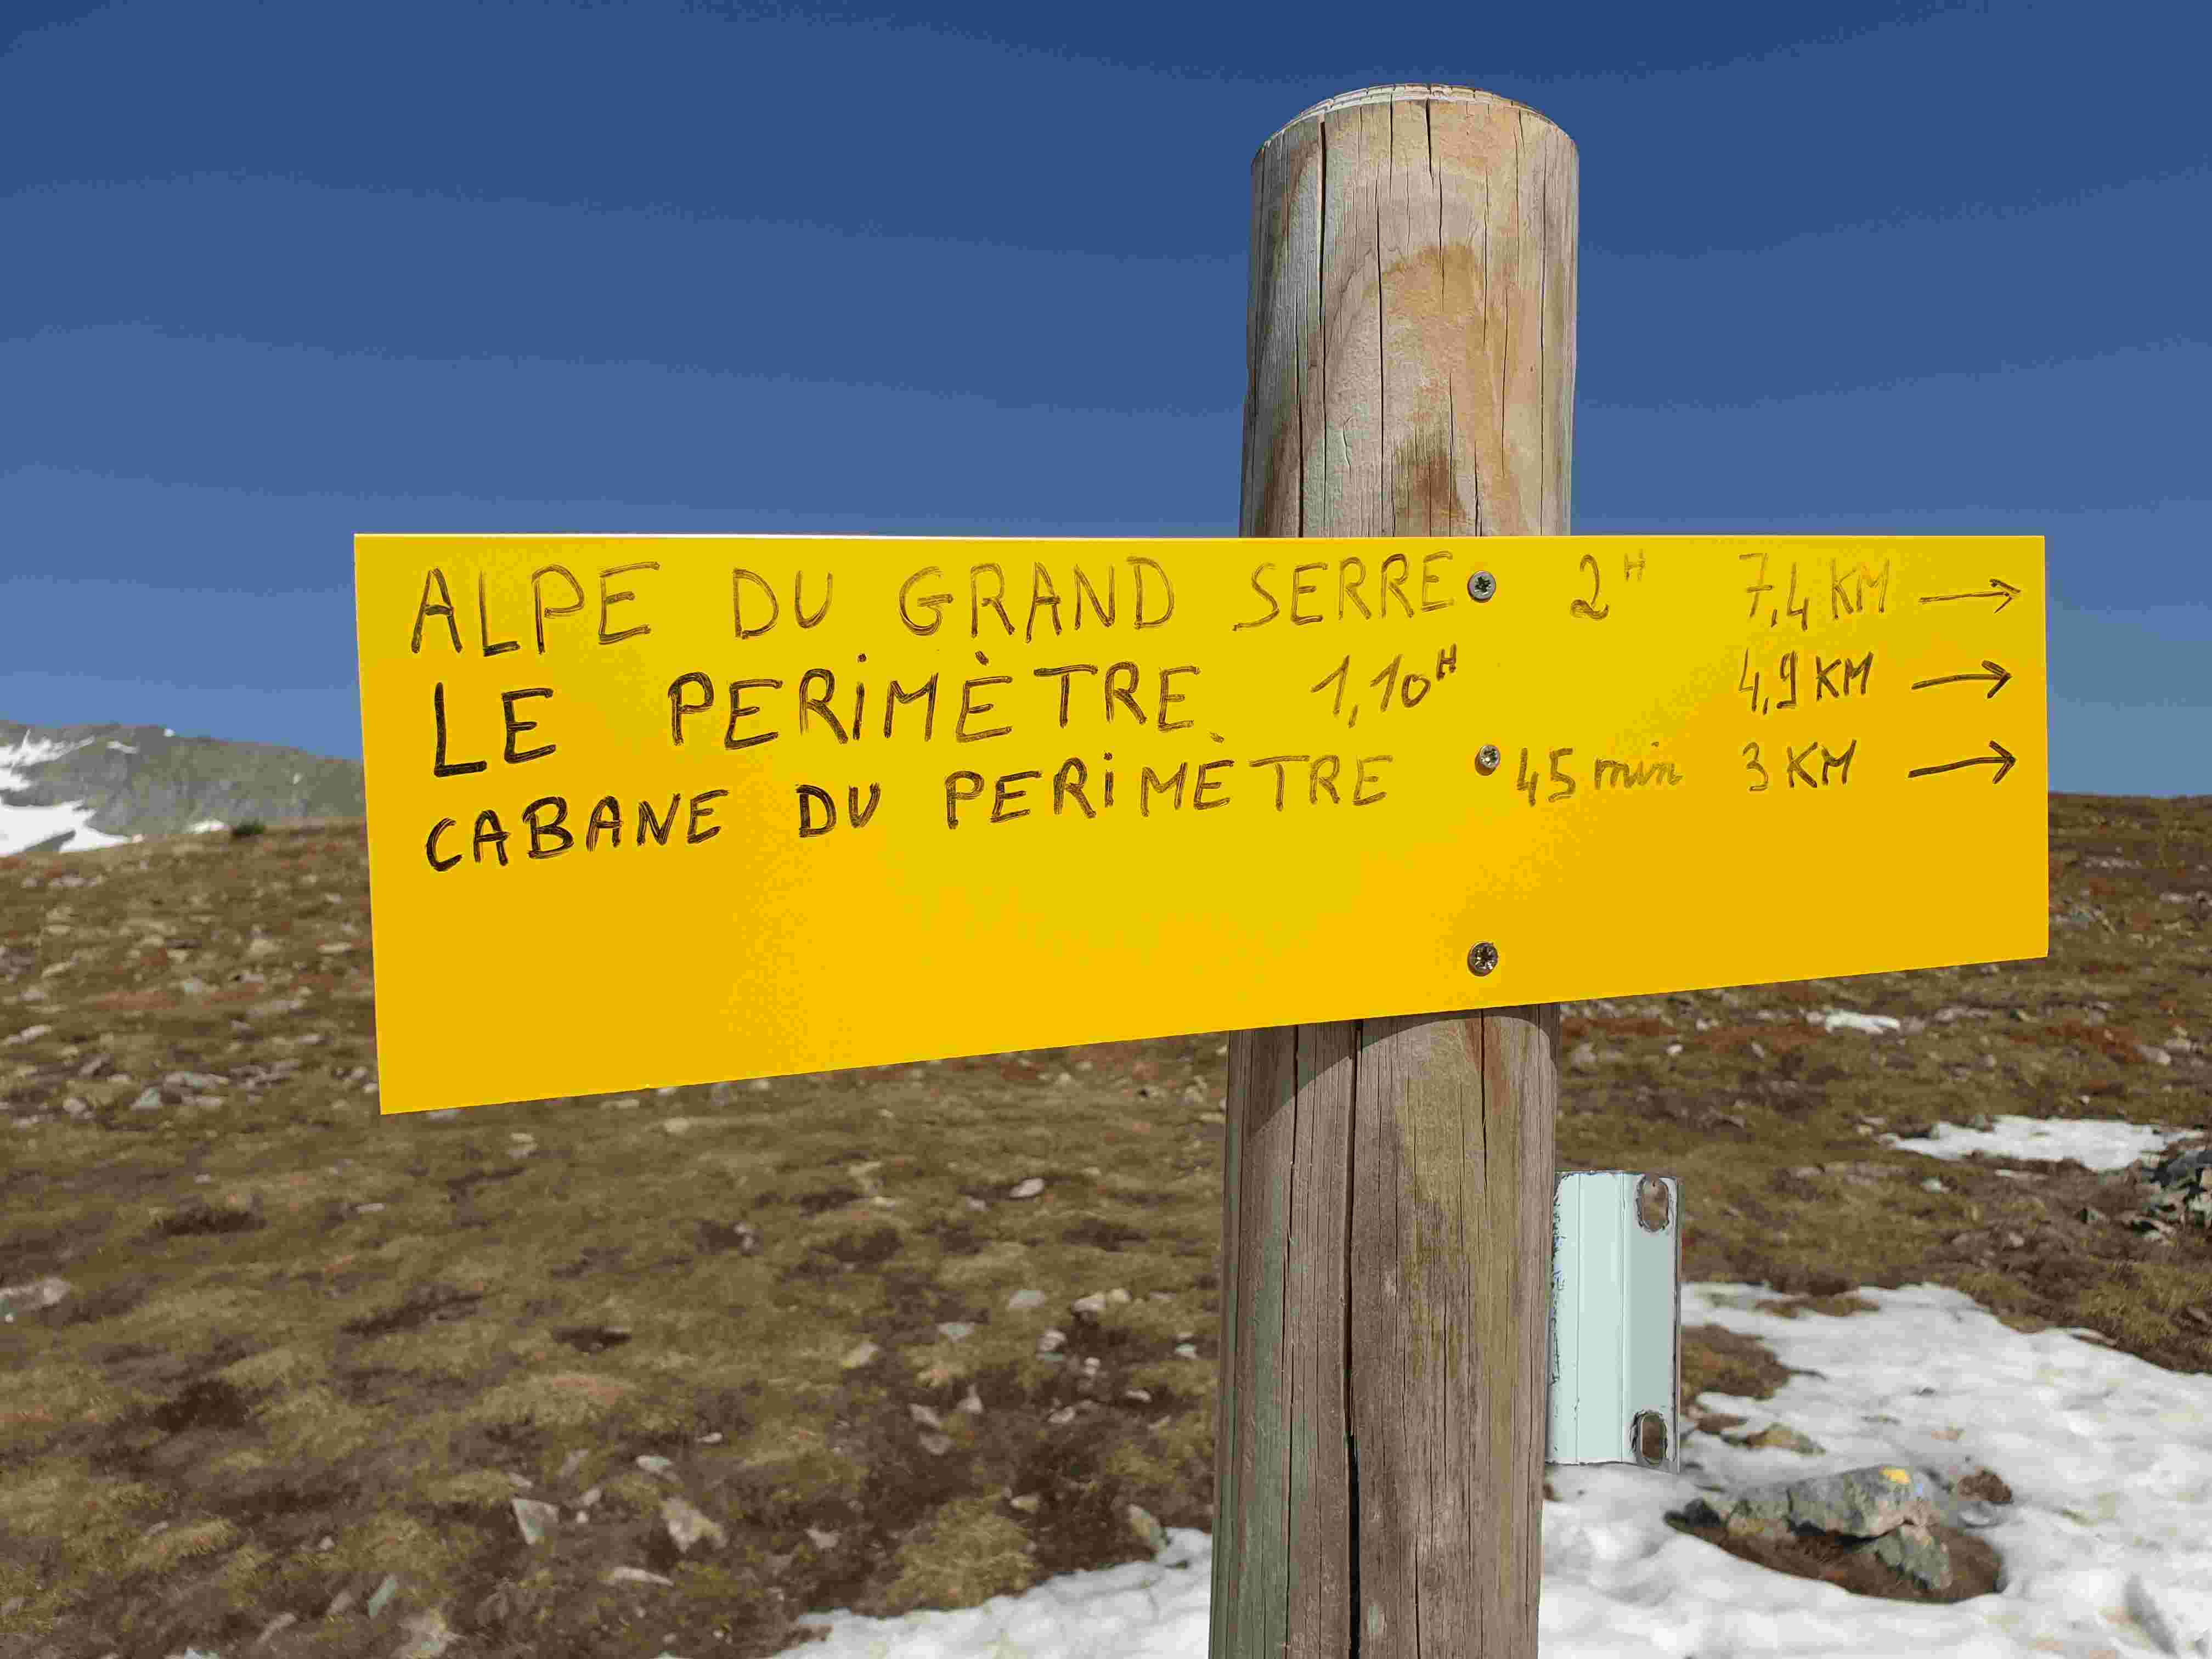 ALPE DU GRAND SERRE 2H 7,4 KM →
LE PERIMÈTRE 1,10H 4,9 KM →
CABANE DU PERIMÈTRE 45 min 3 KM →